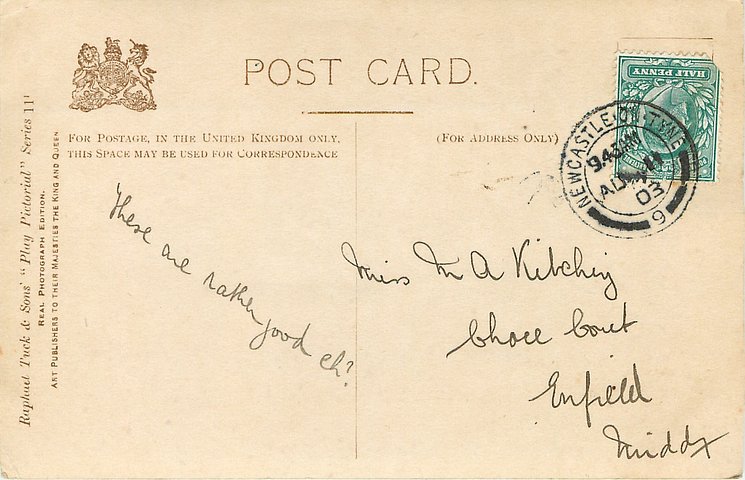 POST CARD.
FOR POSTAGE, IN THE UNITED KINGDOM ONLY,
THIS SPACE MAY BE USED FOR CORRESPONDENCE
(FOR ADDRESS ONLY)
HALF PENNY
NEWCASTLE-ON-TYNE
9.45 AM
AU 11
03
9
These are rather good eh?
Miss M A Kitching
Chace Court
Enfield
Middx
Raphael Tuck & Sons' "Play Pictorial" Series 111
REAL PHOTOGRAPH EDITION.
ART PUBLISHERS TO THEIR MAJESTIES THE KING AND QUEEN